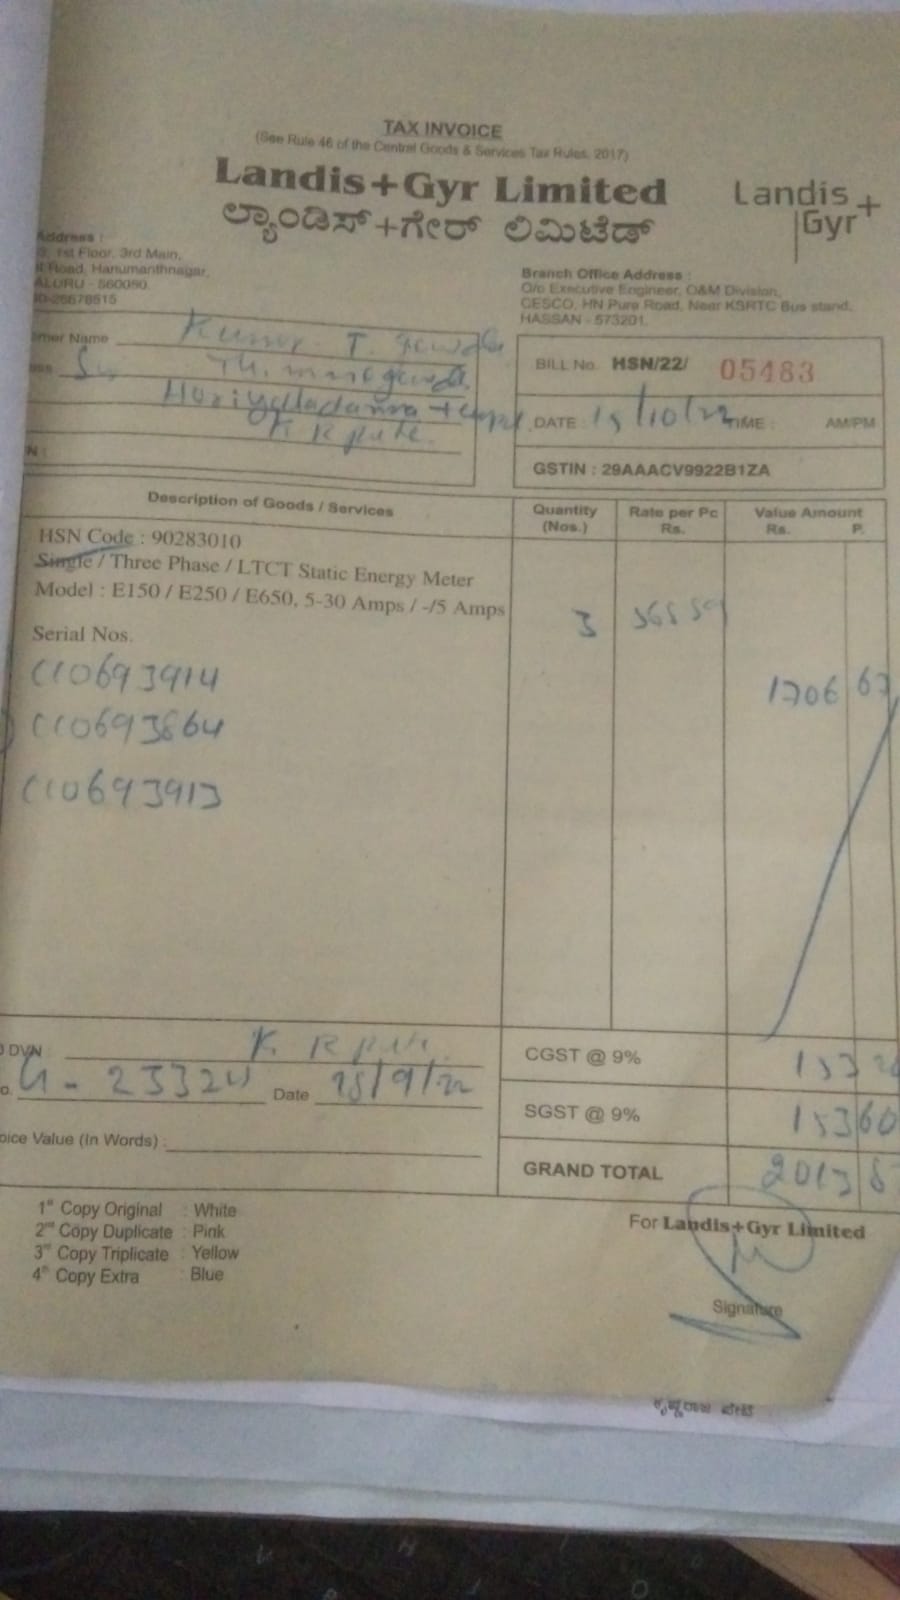 TAX INVOICE
(See Rule 46 of the Central Goods & Services Tax Rules, 2017)
Landis+Gyr Limited
Landis+
Gyr
ಲ್ಯಾಂಡಿಸ್+ಗೇರ್ ಲಿಮಿಟೆಡ್
Address :
1st Floor, 3rd Main,
Road, Hanumanthnagar,
ALURU - 560050.
26678615
Branch Office Address :
O/o Executive Engineer, O&M Division,
CESCO, HN Pura Road, Near KSRTC Bus stand,
HASSAN - 573201.
omer Name Kumar T. gowda
Thimmegowda
K R pete.
N :
BILL No. HSN/22/ 05483
DATE : 15/10/22 TIME : AM/PM
GSTIN : 29AAACV9922B1ZA
Description of Goods / Services
Quantity (Nos.)
Rate per Pc Rs.
Value Amount Rs. P.
HSN Code : 90283010
Single / Three Phase / LTCT Static Energy Meter
Model : E150 / E250 / E650, 5-30 Amps / -/5 Amps
3
Serial Nos.
C10693914
1706
C10693864
C10693913
DVN : K R pete.
o. G - 23324 Date /9/22
oice Value (In Words) :
CGST @ 9% 153
SGST @ 9% 153 60
GRAND TOTAL 2013
1st Copy Original : White
2nd Copy Duplicate : Pink
3rd Copy Triplicate : Yellow
4th Copy Extra : Blue
For Landis+Gyr Limited
Signature